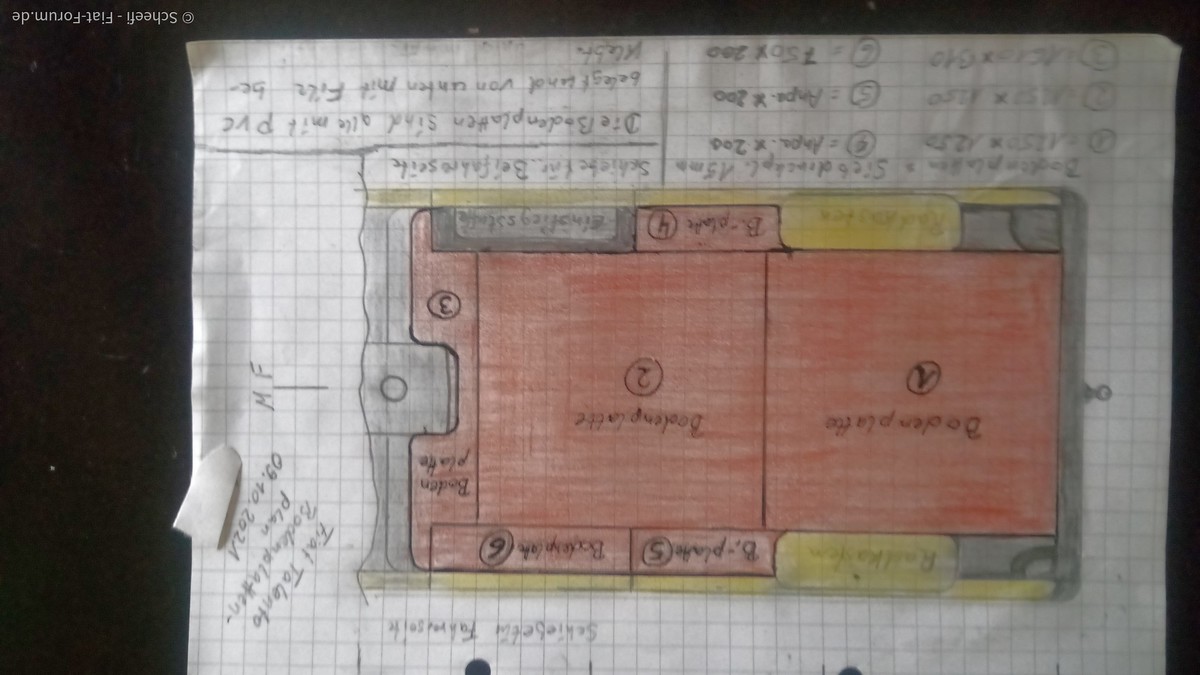 Schiebetür Fahrerseite
Fiat Talento
Bodenplatten-
plan
09.10.2021
Radkasten
B.-platte ⑤
Bodenplatte ⑥
Boden
platte
③
Bodenplatte
①
Bodenplatte
②
M F
Radkasten
B.-platte ④
Einstiegsstufe
Bodenplatten = Siebdruckpl. 15mm
① = 1250 x 1250
④ = Anpa. x 200
② = 1250 x 1250
⑤ = Anpa. x 200
③
⑥ = 750 x 200
Schiebetür Beifahrerseite
Die Bodenplatten sind alle mit PVC
belegt und von unten mit Filz be-
klebt.
© Scheefi - Fiat-Forum.de